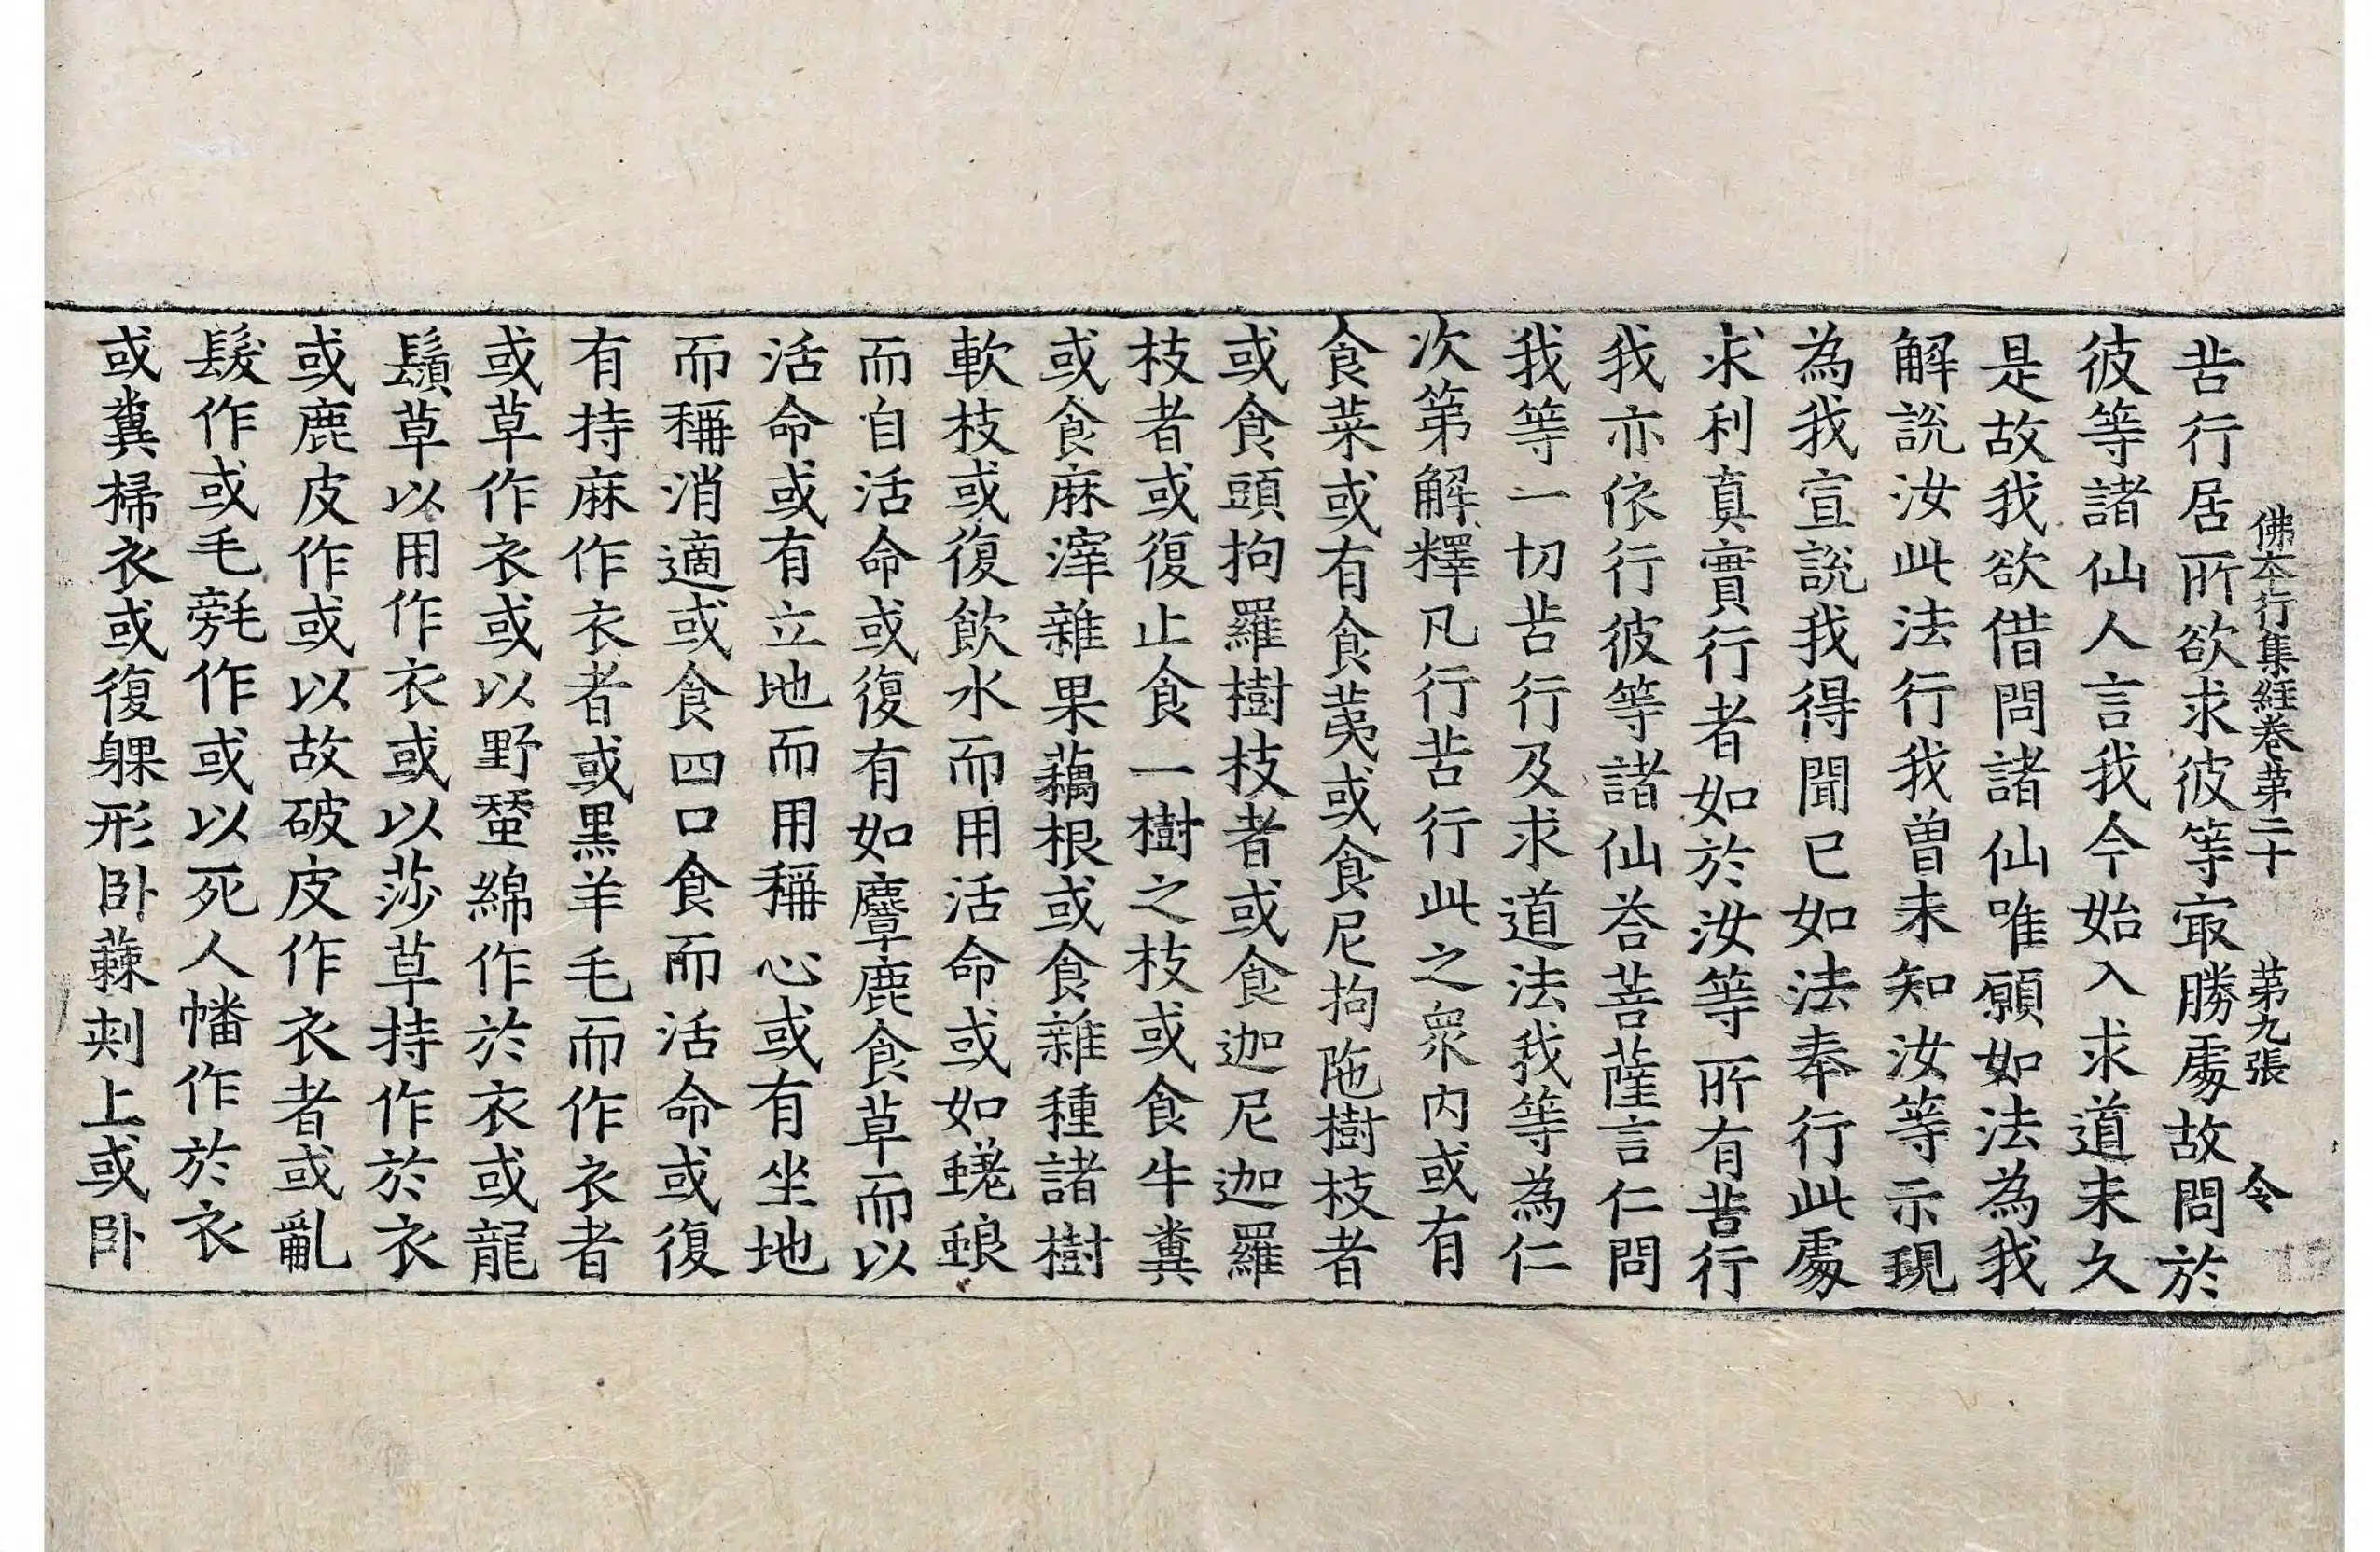 佛本行集經卷第二十 第九張 令
苦行居所欲求彼等㝡勝處故問於
彼等諸仙人言我今始入求道未久
是故我欲借問諸仙唯願如法為我
解説汝此法行我曾未知汝等示現
為我宣説我得聞已如法奉行此處
求利真實行者如於汝等所有苦行
我亦依行彼等諸仙荅菩薩言仁問
我等一切苦行及求道法我等為仁
次第解釋凡行苦行此之衆内或有
食菜或有食荑或食尼拘陁樹枝者
或食頭拘羅樹枝者或食迦尼迦羅
枝者或復止食一樹之枝或食牛糞
或食麻滓雜果藕根或食雜種諸樹
軟枝或復飲水而用活命或如蜣蜋
而自活命或復有如麞鹿食草而以
活命或有立地而用稱心或有坐地
而稱消適或食四口食而活命或復
有持麻作衣者或黒羊毛而作衣者
或草作衣或以野蠶綿作於衣或龍
鬚草以用作衣或以莎草持作於衣
或鹿皮作或以故破皮作衣者或亂
髮作或毛毻作或以死人幡作於衣
或糞掃衣或復躶形卧蕀刾上或卧